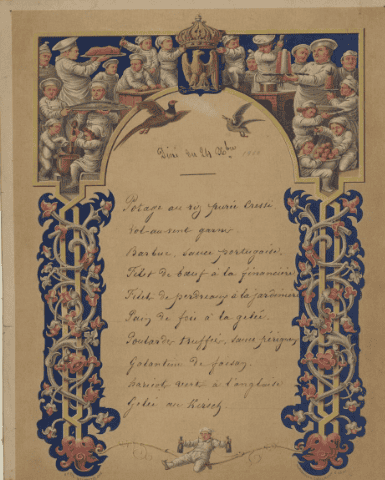 Diné du 24 8bre
Potage au riz purée Cressi
Vol-au-vent garni
Barbue, sauce portugaise.
Filet de bœuf à la financière
Filet de perdreaux à la jardinière
Pain de foie à la gelée.
Poularde truffée, sauce périgueux
Galantine de faisan.
Haricot vert à l'anglaise
Gelée au Kirsch